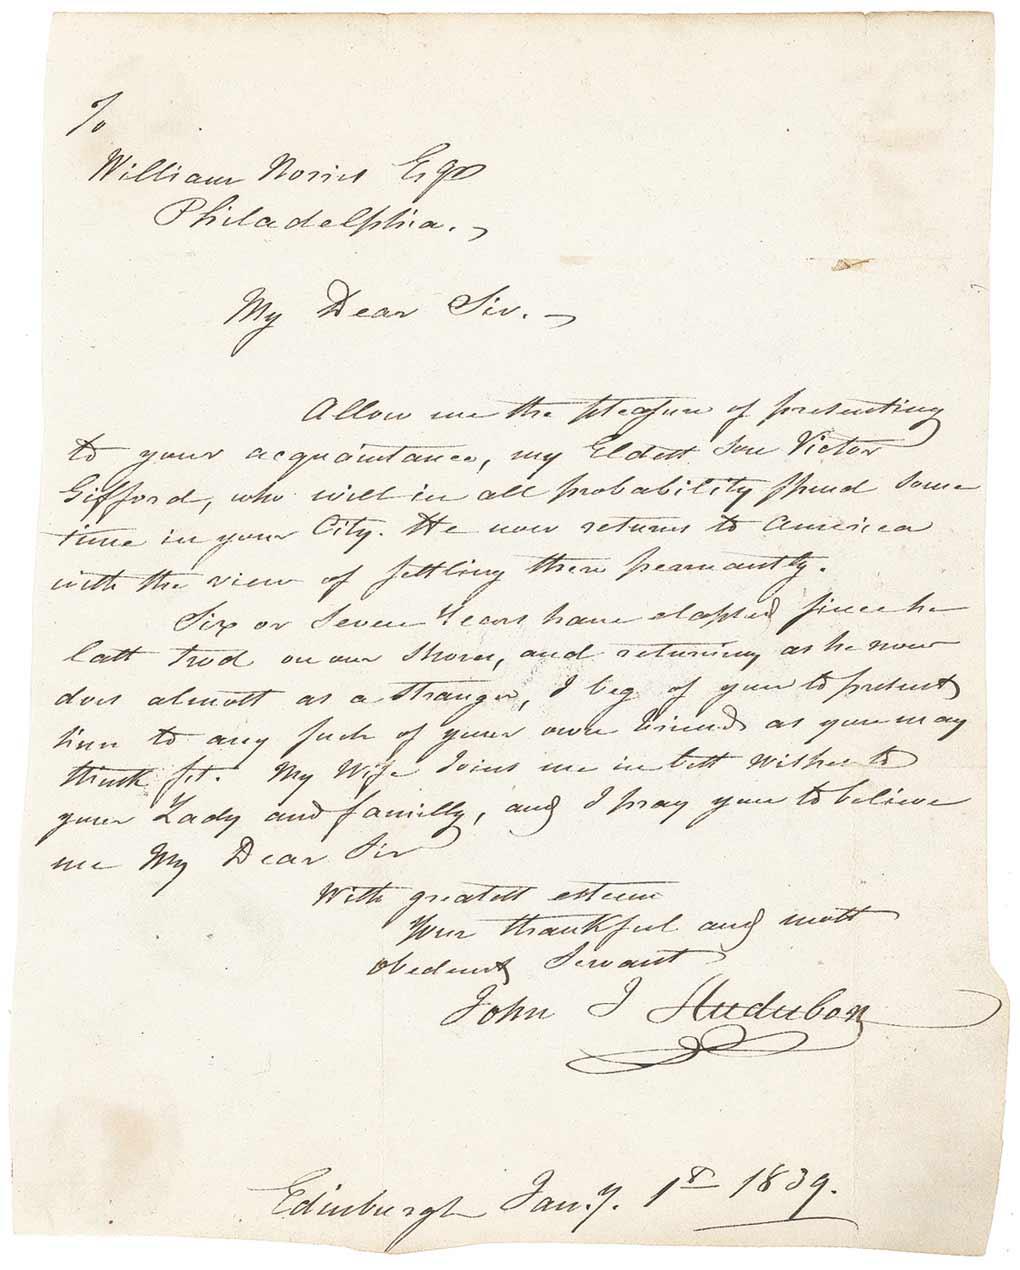 To
William Norris Esqr
Philadelphia.
My Dear Sir.
Allow me the pleasure of presenting
to your acquaintance, my Eldest Son Victor
Gifford, who will in all probability spend some
time in your City. He now returns to America
with the view of settling there permantly.
Six or Seven Years have elapsed since he
last trod on our Shores, and returning as he now
does almost as a Stranger, I beg of you to present
him to any such of your own friends as you may
think fit. My Wife Joins me in best Wishes to
your Lady and familly, and I pray you to believe
me My Dear Sir
With greatest esteem
Your thankful and most
obedient Servant
John J Audubon
Edinburgh Jany. 1st 1839.